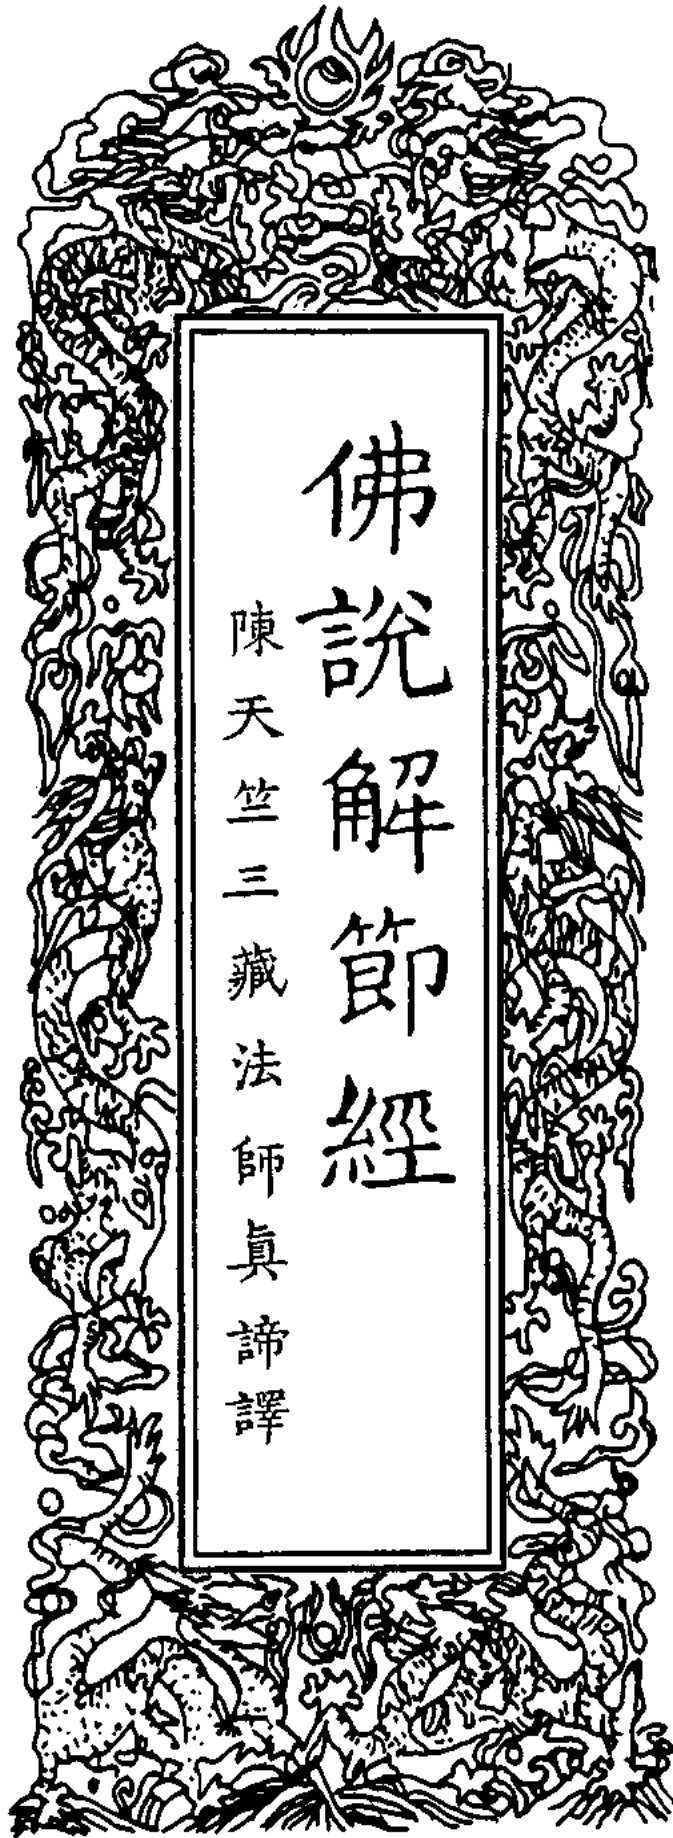 佛說解節經
陳天竺三藏法師眞諦譯